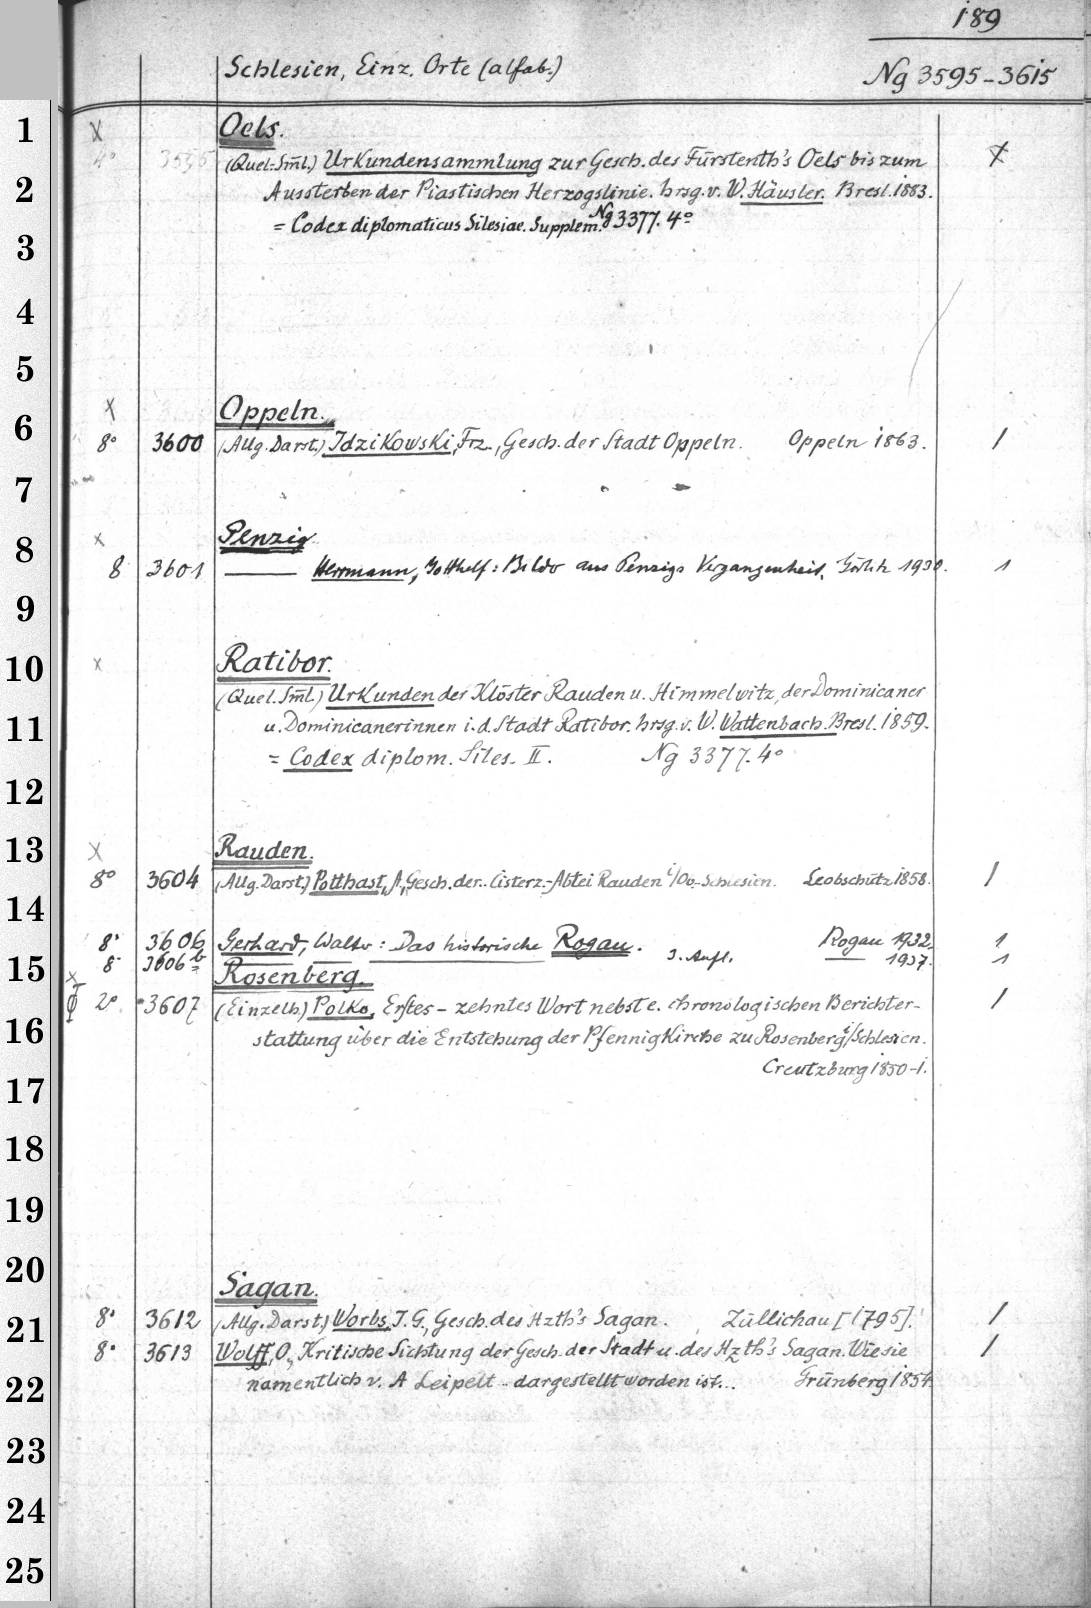 189
Schlesien, Einz. Orte (alfab.)
Ng 3595-3615
1
x
Oels.
4° 3595 (Quel.-Sml.) Urkundensammlung zur Gesch. des Fürstenth's Oels bis zum x
2
Aussterben der Piastischen Herzogslinie. hrsg. v. W. Häusler. Bresl. 1883.
= Codex diplomaticus Silesiae. Supplem. Ng 3377. 4°
3
4
5
x
Oppeln.
6
8° 3600 (Allg. Darst.) Idzikowski, Frz., Gesch. der Stadt Oppeln. Oppeln 1863. 1
7
x
Penzig
8
8 3601 ——— Herrmann, Gotthelf: Bilder aus Penzigs Vergangenheit. Görlitz 1930. 1
9
10
x
Ratibor.
(Quel. Sml.) Urkunden der Klöster Rauden u. Himmelwitz, der Dominicaner
11
u. Dominicanerinnen i. d. Stadt Ratibor. hrsg. v. W. Wattenbach. Bresl. 1859.
= Codex diplom. Siles. II. Ng 3377. 4°
12
13
x
Rauden.
8° 3604 (Allg. Darst.) Potthast, A., Gesch. der.. Cisterz.-Abtei Rauden i/Ob-Schlesien. Leobschütz 1858. 1
14
8° 3606 Gerhard, Walter: Das historische Rogau. Rogau 1932. 1
15
8° 3606b — — — 3. Aufl. — 1937. 1
x
Rosenberg.
2° 3607 (Einzelh) Polko, Erstes - zehntes Wort nebst e. chronologischen Berichter- 1
16
stattung über die Entstehung der Pfennigkirche zu Rosenberg i/Schlesien.
Creutzburg 1850-1.
17
18
19
20
Sagan.
21
8° 3612 (Allg. Darst.) Worbs, J. G., Gesch. des Hzth's Sagan. Züllichau [1795]. 1
8° 3613 Wolff, O., Kritische Sichtung der Gesch. der Stadt u. des Hzth's Sagan. Wie sie 1
22
namentlich v. A Leipelt - dargestellt worden ist... Grünberg 1854.
23
24
25